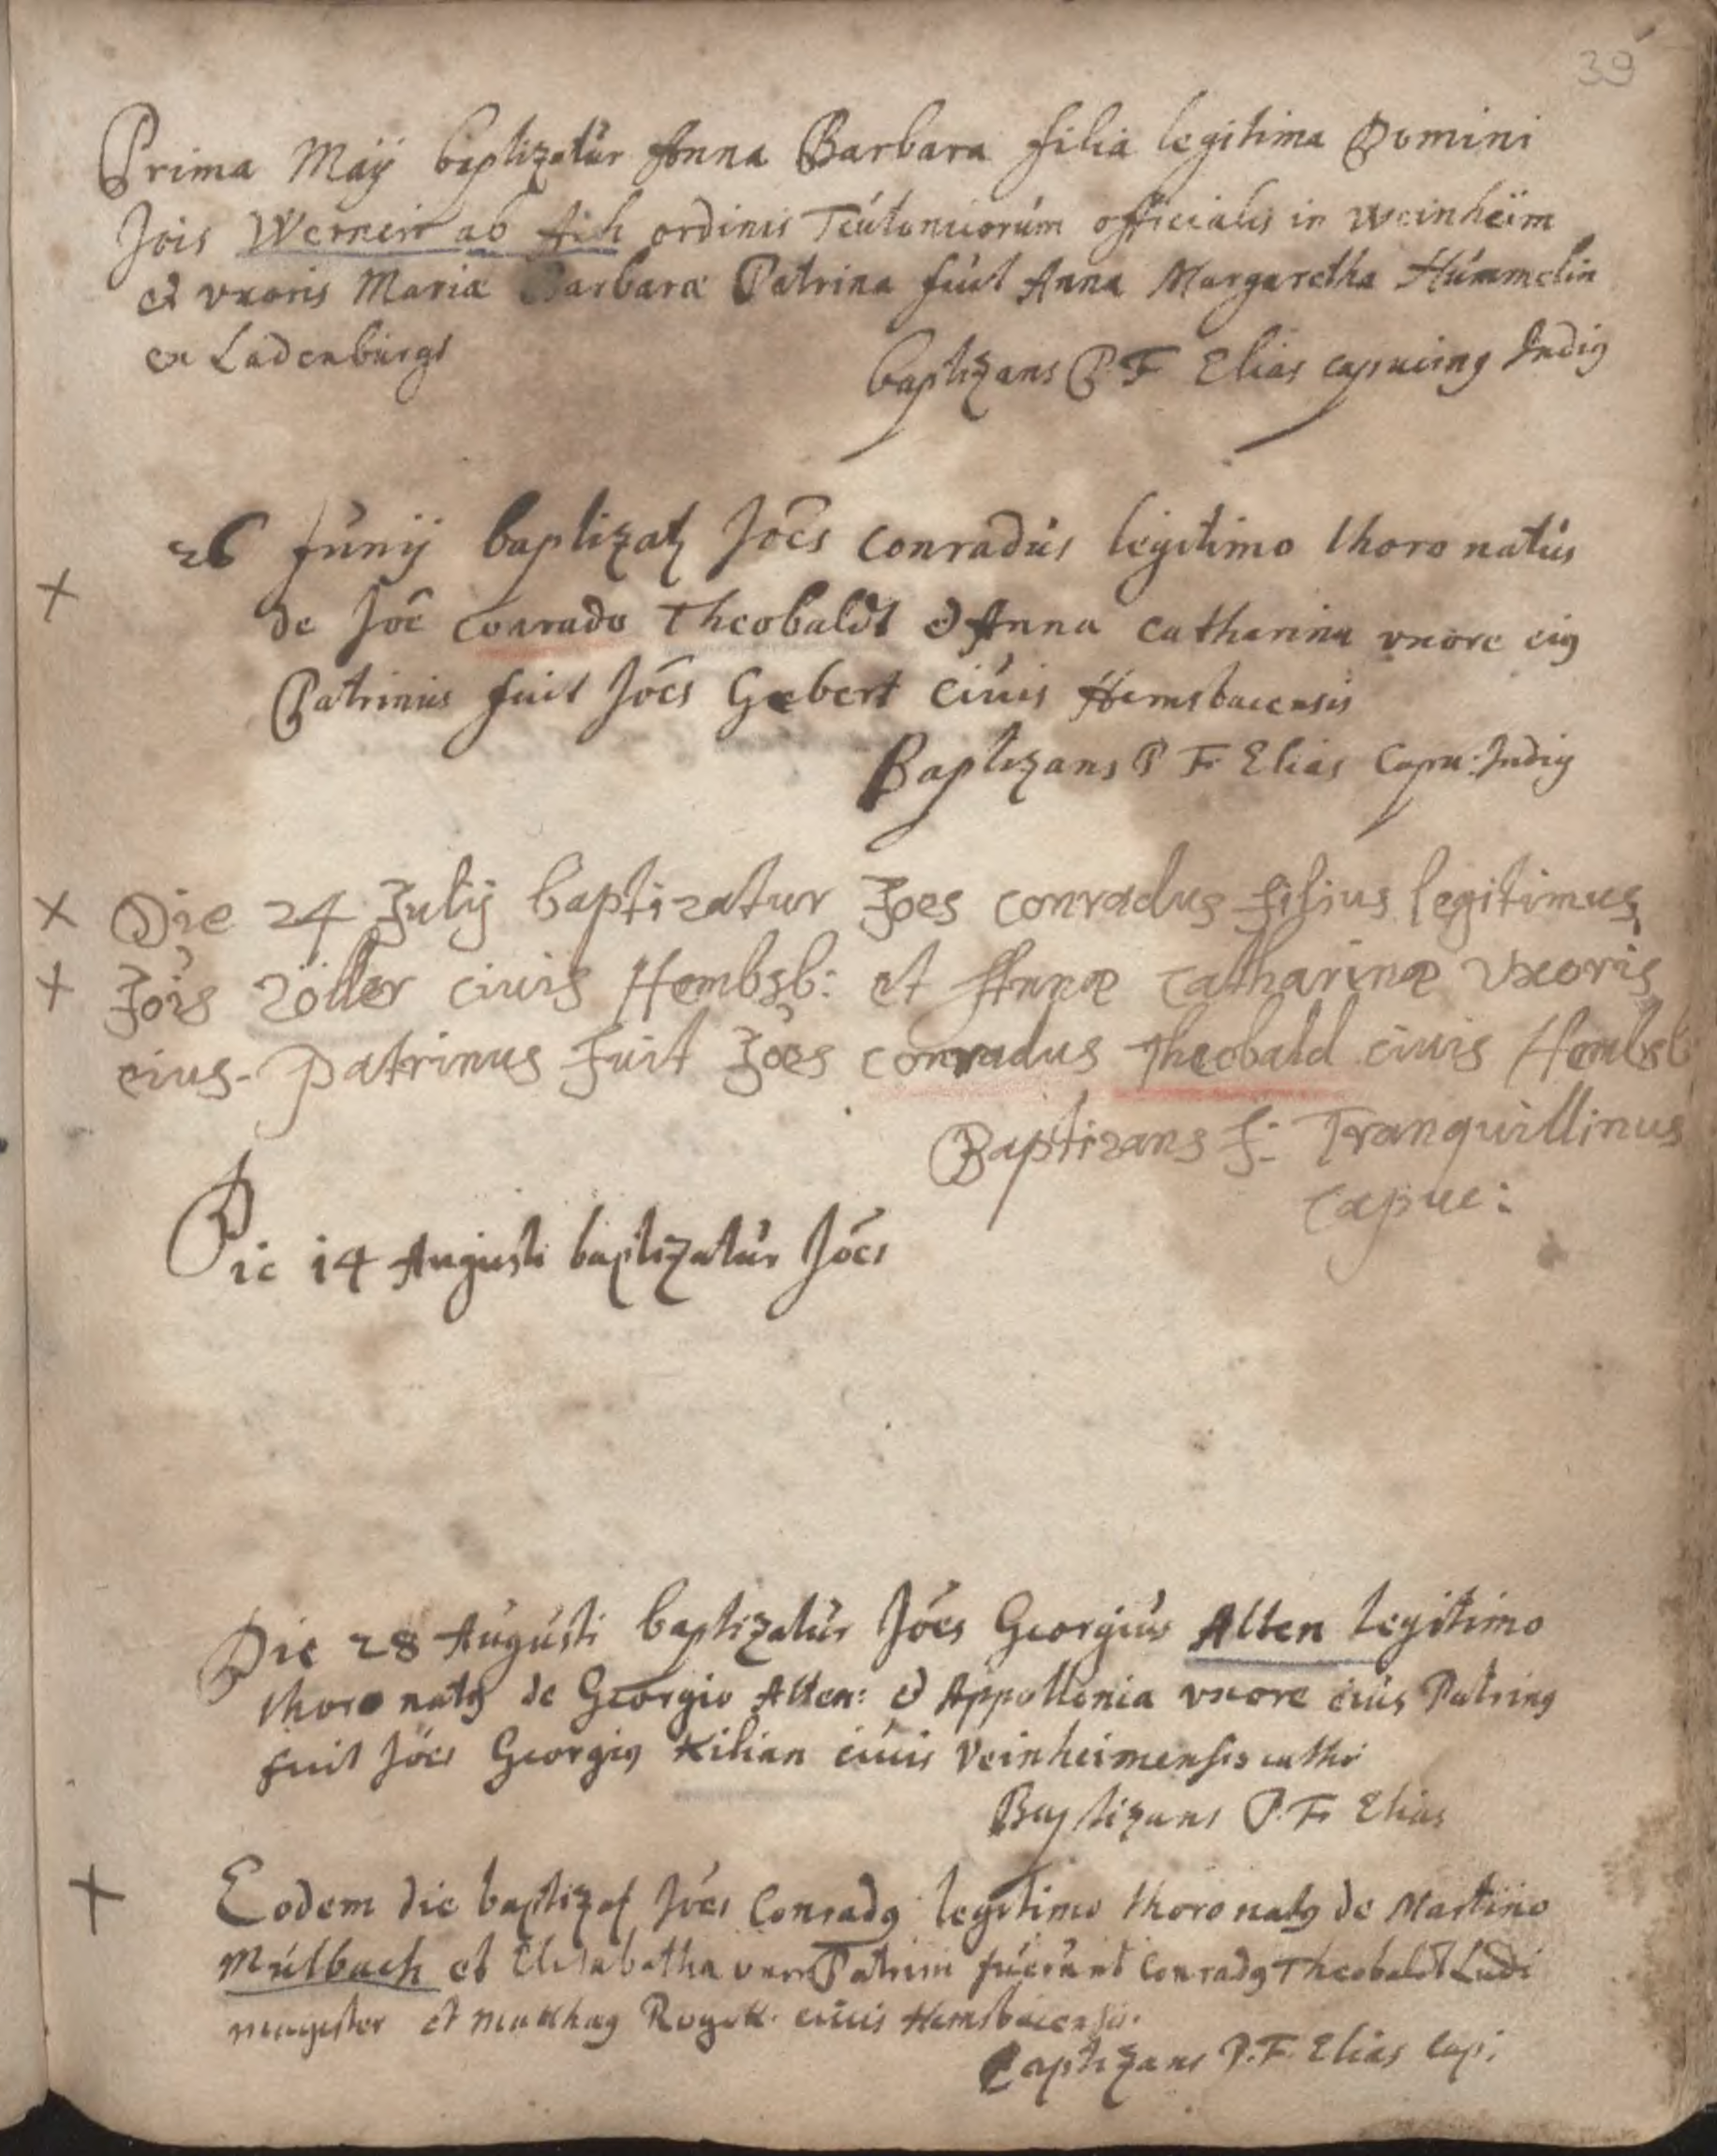 39
Prima Maÿ baptizatur Anna Barbara filia legitima Domini
Jois Werneri ab Aich ordinis Teutonicorúm officialis in Weinheim
et vxoris Mariæ Barbaræ Patrina fuit Anna Margaretha Húmmelin
ex Ladenbúrgs
baptizans P F Elias capucing Indig
26 Junij baptizatz Joes Conradús legitimo thoro natús
de Joe Conrado Theobaldt et Anna Catharina vxore eig
Patrinius fuit Joes Gebert Civis Hemsbacensis
Baptizans P F Elias Capu: Indig
Die 24 Julij baptizatur Joes Conradus filius legitimus
Jois Zöller civis Hembsb: et Annæ Catharinæ Vxoris
eius. patrinus fuit Joes Conradus Theobald civis Hembsb
Baptizans f: Tranquillinus
Capuc:
Die 14 Augusti baptizatúr Jóes
Die 28 Augústi baptizatúr Jóes Georgiús Alten legitimo
thoro natg de Georgio Alten: et Appollonia vxore eiús Patring
fuit Jóes Georgig Kilian civis Veinheimensis
Baptizans P. F. Elias
Eodem die baptizat Jóes Conradg legitimo thoro natg de Martino
Múlbach et Elisabetha vxore Patrini fúerúnt Conradg Theobaldt Ludi
magister et civis Hemsbacensis.
Baptizans P. F. Elias Cap: